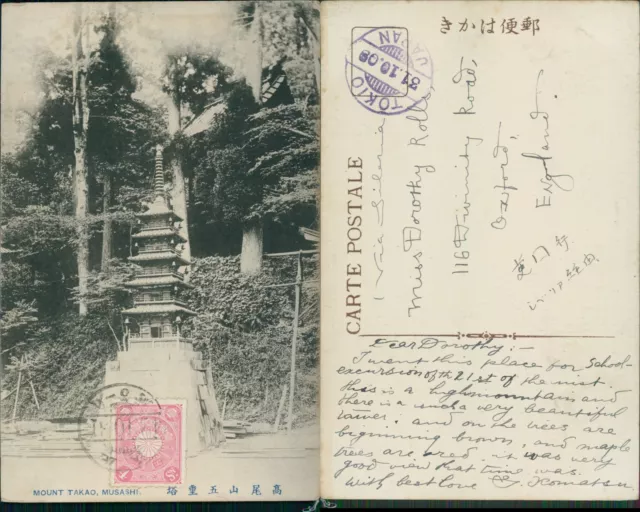 MOUNT TAKAO, MUSASHI.
塔重五山尾高
郵便はかき
CARTE POSTALE
TOKIO
31.10.08
JAPAN
Via Siberia
Miss Dorothy Rolls,
116 Divinity Road,
Oxford,
England.
Dear Dorothy:-
I went this place for School-
excursion of the 21st of the inst.
this is a high mountain and
there is a such a very beautiful
tower. and on the trees are
beginning brown, and maple
trees are red. it was very
good view that time was.
With best love Komatsu